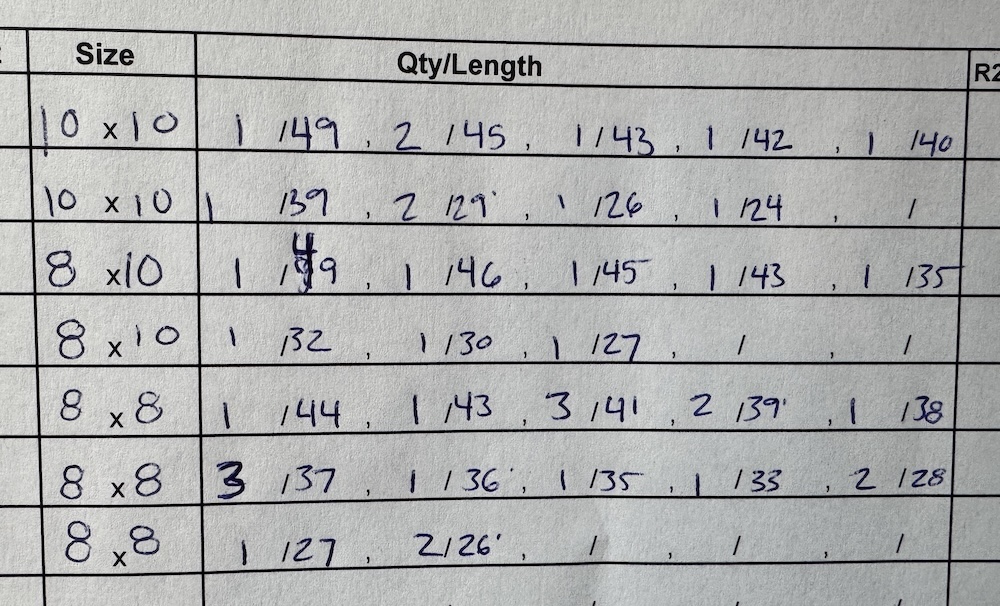 Size Qty/Length R2
10 x 10 1 /49 , 2 /45 , 1 /43 , 1 /42 , 1 /40
10 x 10 1 /39 , 2 /29' , 1 /26 , 1 /24 , /
8 x 10 1 /49 , 1 /46 , 1 /45 , 1 /43 , 1 /35
8 x 10 1 /32 , 1 /30 , 1 /27 , / , /
8 x 8 1 /44 , 1 /43 , 3 /41 , 2 /39' , 1 /38
8 x 8 3 /37 , 1 /36' , 1 /35 , 1 /33 , 2 /28
8 x 8 1 /27 , 2 /26' , / , / , /